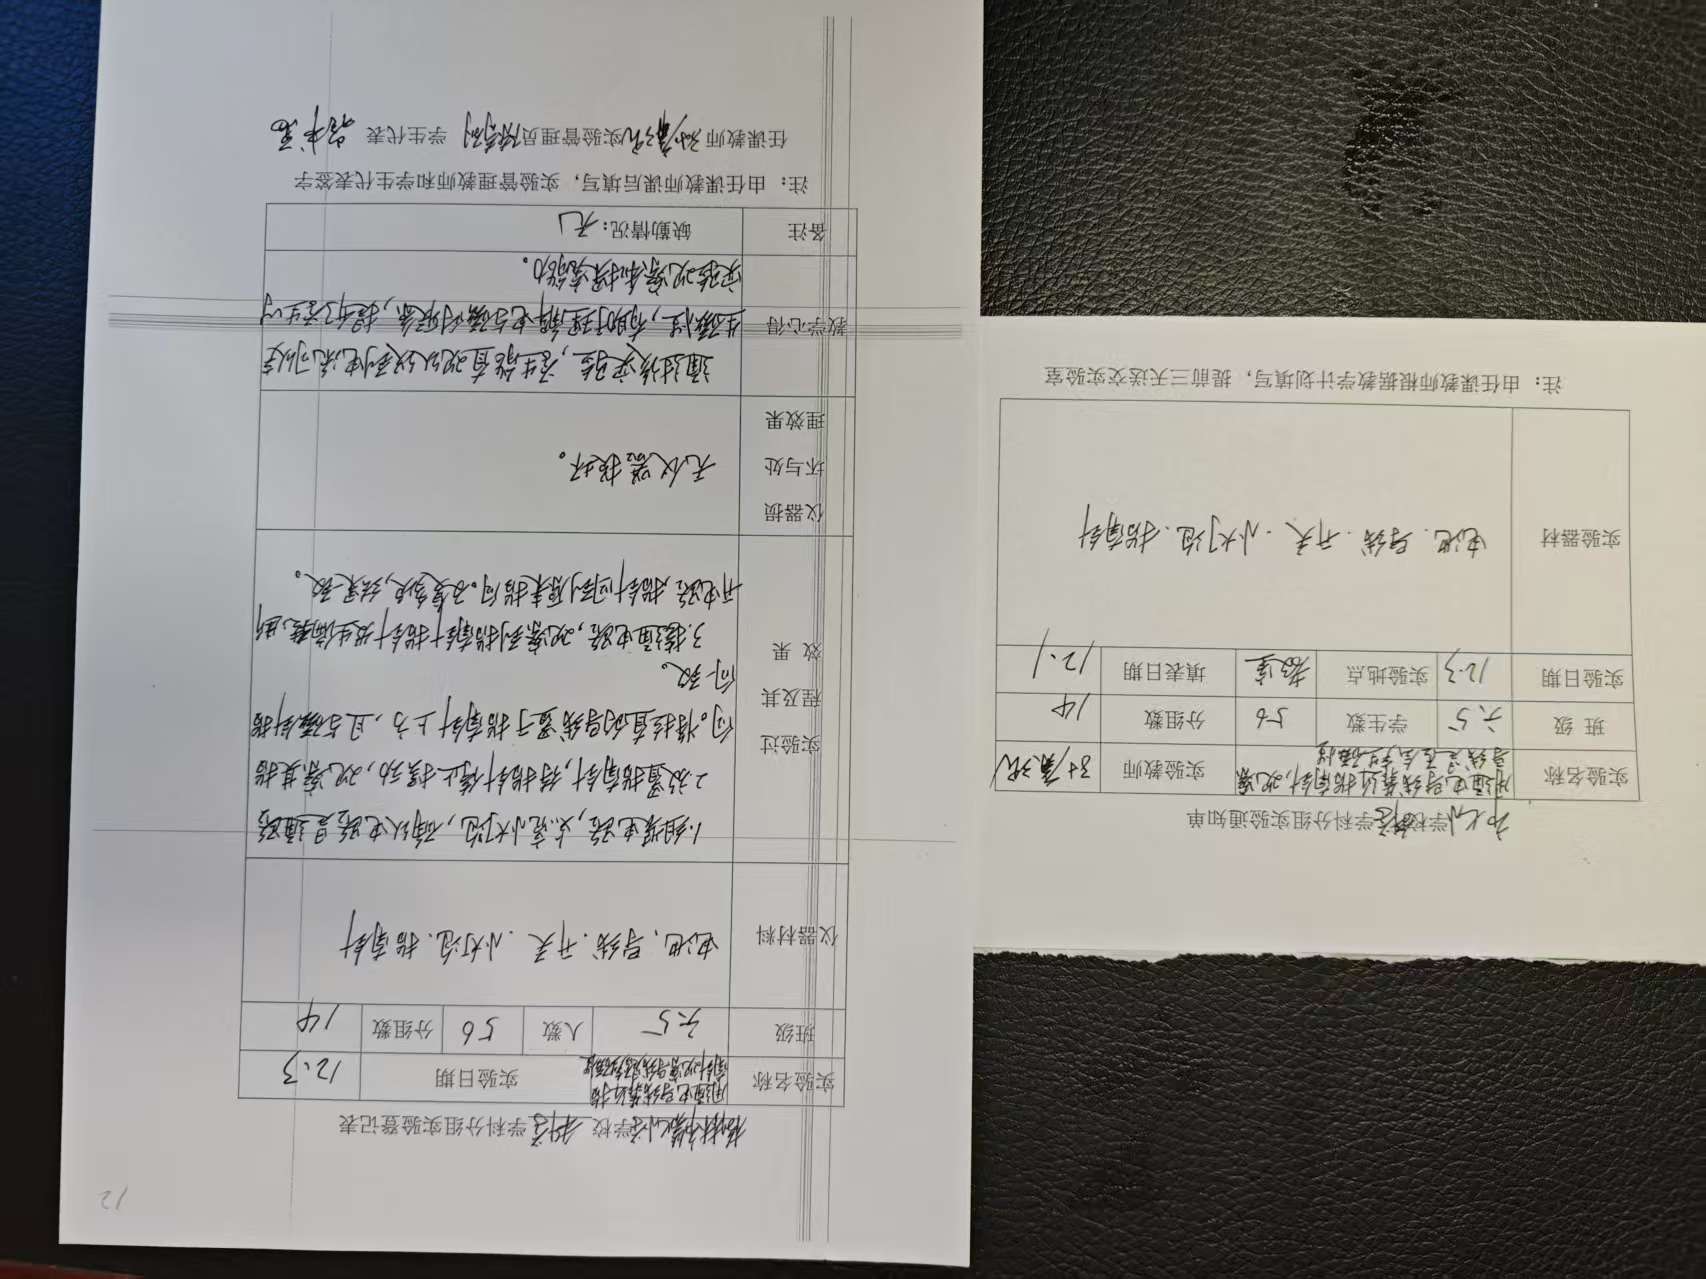 学校科学学科分组实验登记表
实验名称 用通电导线靠近指南针观察导线 实验日期 12.3
班级 六.5 人数 56 分组数 14
仪器材料 电池、导线、开关、小灯泡、指南针
实验过程及其效果
1.组装电路,点亮小灯泡,确认电路是通路
2.放置指南针,待指针停止摆动,观察其指
向。将拉直的导线置于指南针上方,且与磁针指
向一致。
3.接通电路,观察到指南针指针发生偏转,断
开电路,指针回到原来指向。反复多次,结果一致。
仪器损坏与处理效果 无仪器损坏。
教学心得
通过该实验,学生能直观认识到电流可以产
生磁性,有助于理解电与磁的联系,提升了学生的
实验观察和探究能力。
备注 缺勤情况:无
注:由任课教师课后填写,实验管理教师和学生代表签字
任课教师 实验管理员 学生代表
12
学校科学学科分组实验通知单
实验名称 用通电导线靠近指南针,观察导线是否会产生磁性 实验教师
班级 六.5 学生数 56 分组数 14
实验日期 12.3 实验地点 教室 填表日期 12.1
实验器材 电池、导线、开关、小灯泡、指南针
注:由任课教师根据教学计划填写,提前三天送交实验室